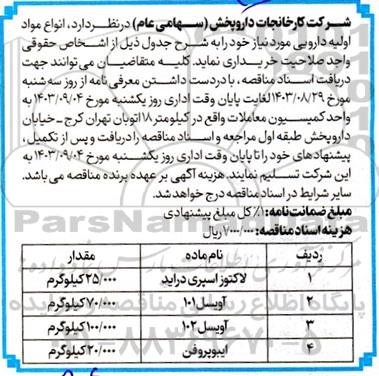 شرکت کارخانجات داروپخش (سهامی عام) در نظر دارد، انواع مواد
اولیه دارویی مورد نیاز خود را به شرح جدول ذیل از اشخاص حقوقی
واجد صلاحیت خریداری نماید. کلیه متقاضیان می‌توانند جهت
دریافت اسناد مناقصه، با در دست داشتن معرفی نامه از روز سه شنبه
مورخ ۱۴۰۳/۰۸/۲۹ لغایت پایان وقت اداری روز یکشنبه مورخ ۱۴۰۳/۰۹/۰۴ به
واحد کمیسیون معاملات واقع در کیلومتر ۱۸ اتوبان تهران کرج - خیابان
داروپخش طبقه اول مراجعه و اسناد مناقصه را دریافت و پس از تکمیل،
پیشنهادهای خود را تا پایان وقت اداری روز یکشنبه مورخ ۱۴۰۳/۰۹/۰۴ به
این شرکت تسلیم نمایند. هزینه آگهی بر عهده برنده مناقصه می باشد.
سایر شرایط در اسناد مناقصه درج خواهد شد.
مبلغ ضمانت نامه: ۱٪ کل مبلغ پیشنهادی
هزینه اسناد مناقصه: ۷/۰۰۰/۰۰۰ ریال
ردیف نام ماده مقدار
۱ لاکتوز اسپری دراید ۲۵/۰۰۰ کیلوگرم
۲ آویسل ۱۰۱ ۷۰/۰۰۰ کیلوگرم
۳ آویسل ۱۰۲ ۱۰۰/۰۰۰ کیلوگرم
۴ ایبوپروفن ۲۰/۰۰۰ کیلوگرم